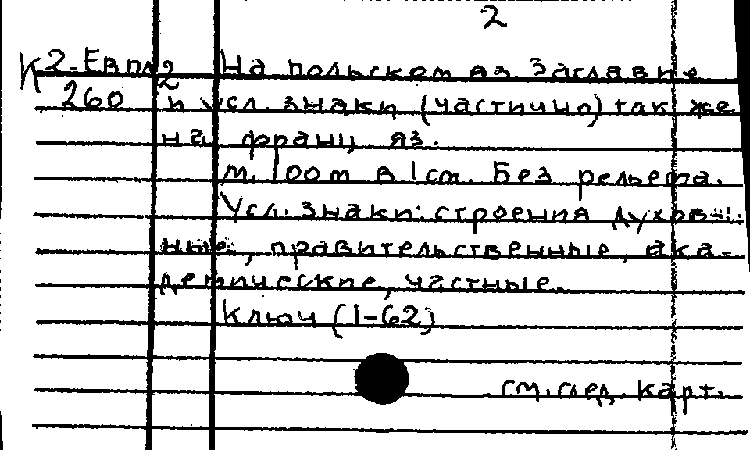 2
К 2-Евпл 2 На польском яз. Заглавие
260 и усл. знаки (частично) так же
на франц. яз.
М. 100 м в 1 см. Без рельефа.
Усл. знаки: строения духов-
ные, правительственные, ака-
демические, частные.
Ключ (1-62)
см. след. карт.